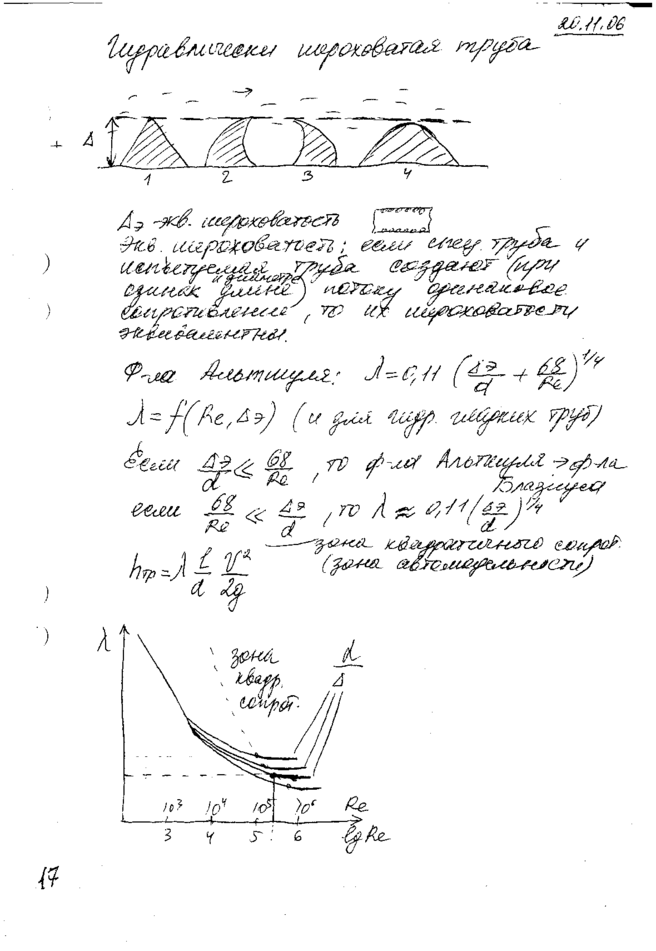 20.11.06
Гидравлически шероховатая труба
+ Δ
1 2 3 4
Δэ - экв. шероховатость
Экв. шероховатость: если спец. труба и
испытуемая труба создают (при
одинак длине и диаметре) потоку одинаковое
сопротивление, то их шероховатости
эквивалентны.
Ф-ла Альтшуля: λ=0,11 (Δэ/d + 68/Re)^1/4
λ=f(Re, Δэ) (и для гидр. гладких труб)
Если Δэ/d ≪ 68/Re, то ф-ла Альтшуля → ф-ла
Блазиуса
если 68/Re ≪ Δэ/d, то λ ≈ 0,11(Δэ/d)^1/4
зона квадратичного сопрот.
(зона автомодельности)
hтр = λ l/d V²/2g
λ
зона
квадр.
сопрот.
d/Δ
10³ 10⁴ 10⁵ 10⁶ Re
3 4 5 6 lg Re
17